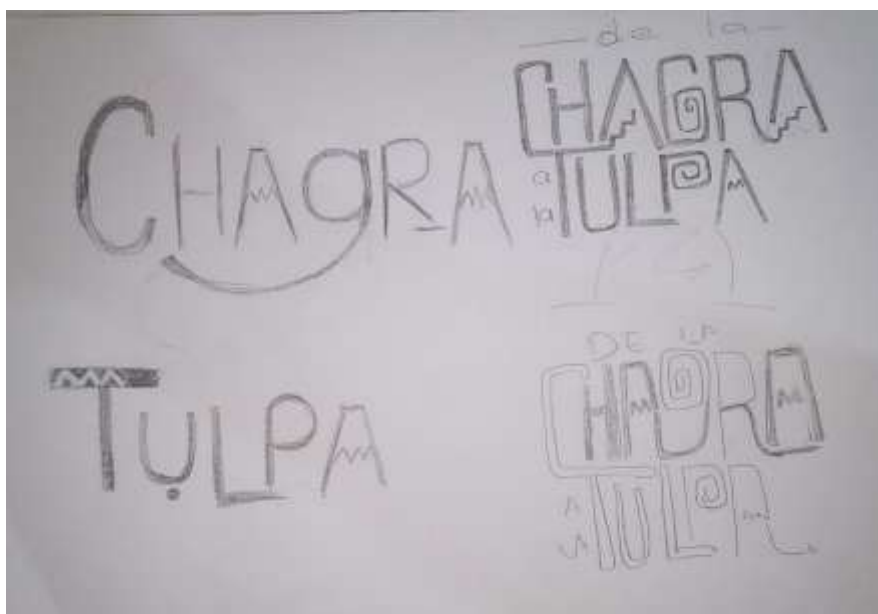 CHAgRA
TULPA
de la
CHAGRA
a
la
TULPA
DE LA
CHAGRA
A
LA
TULPA